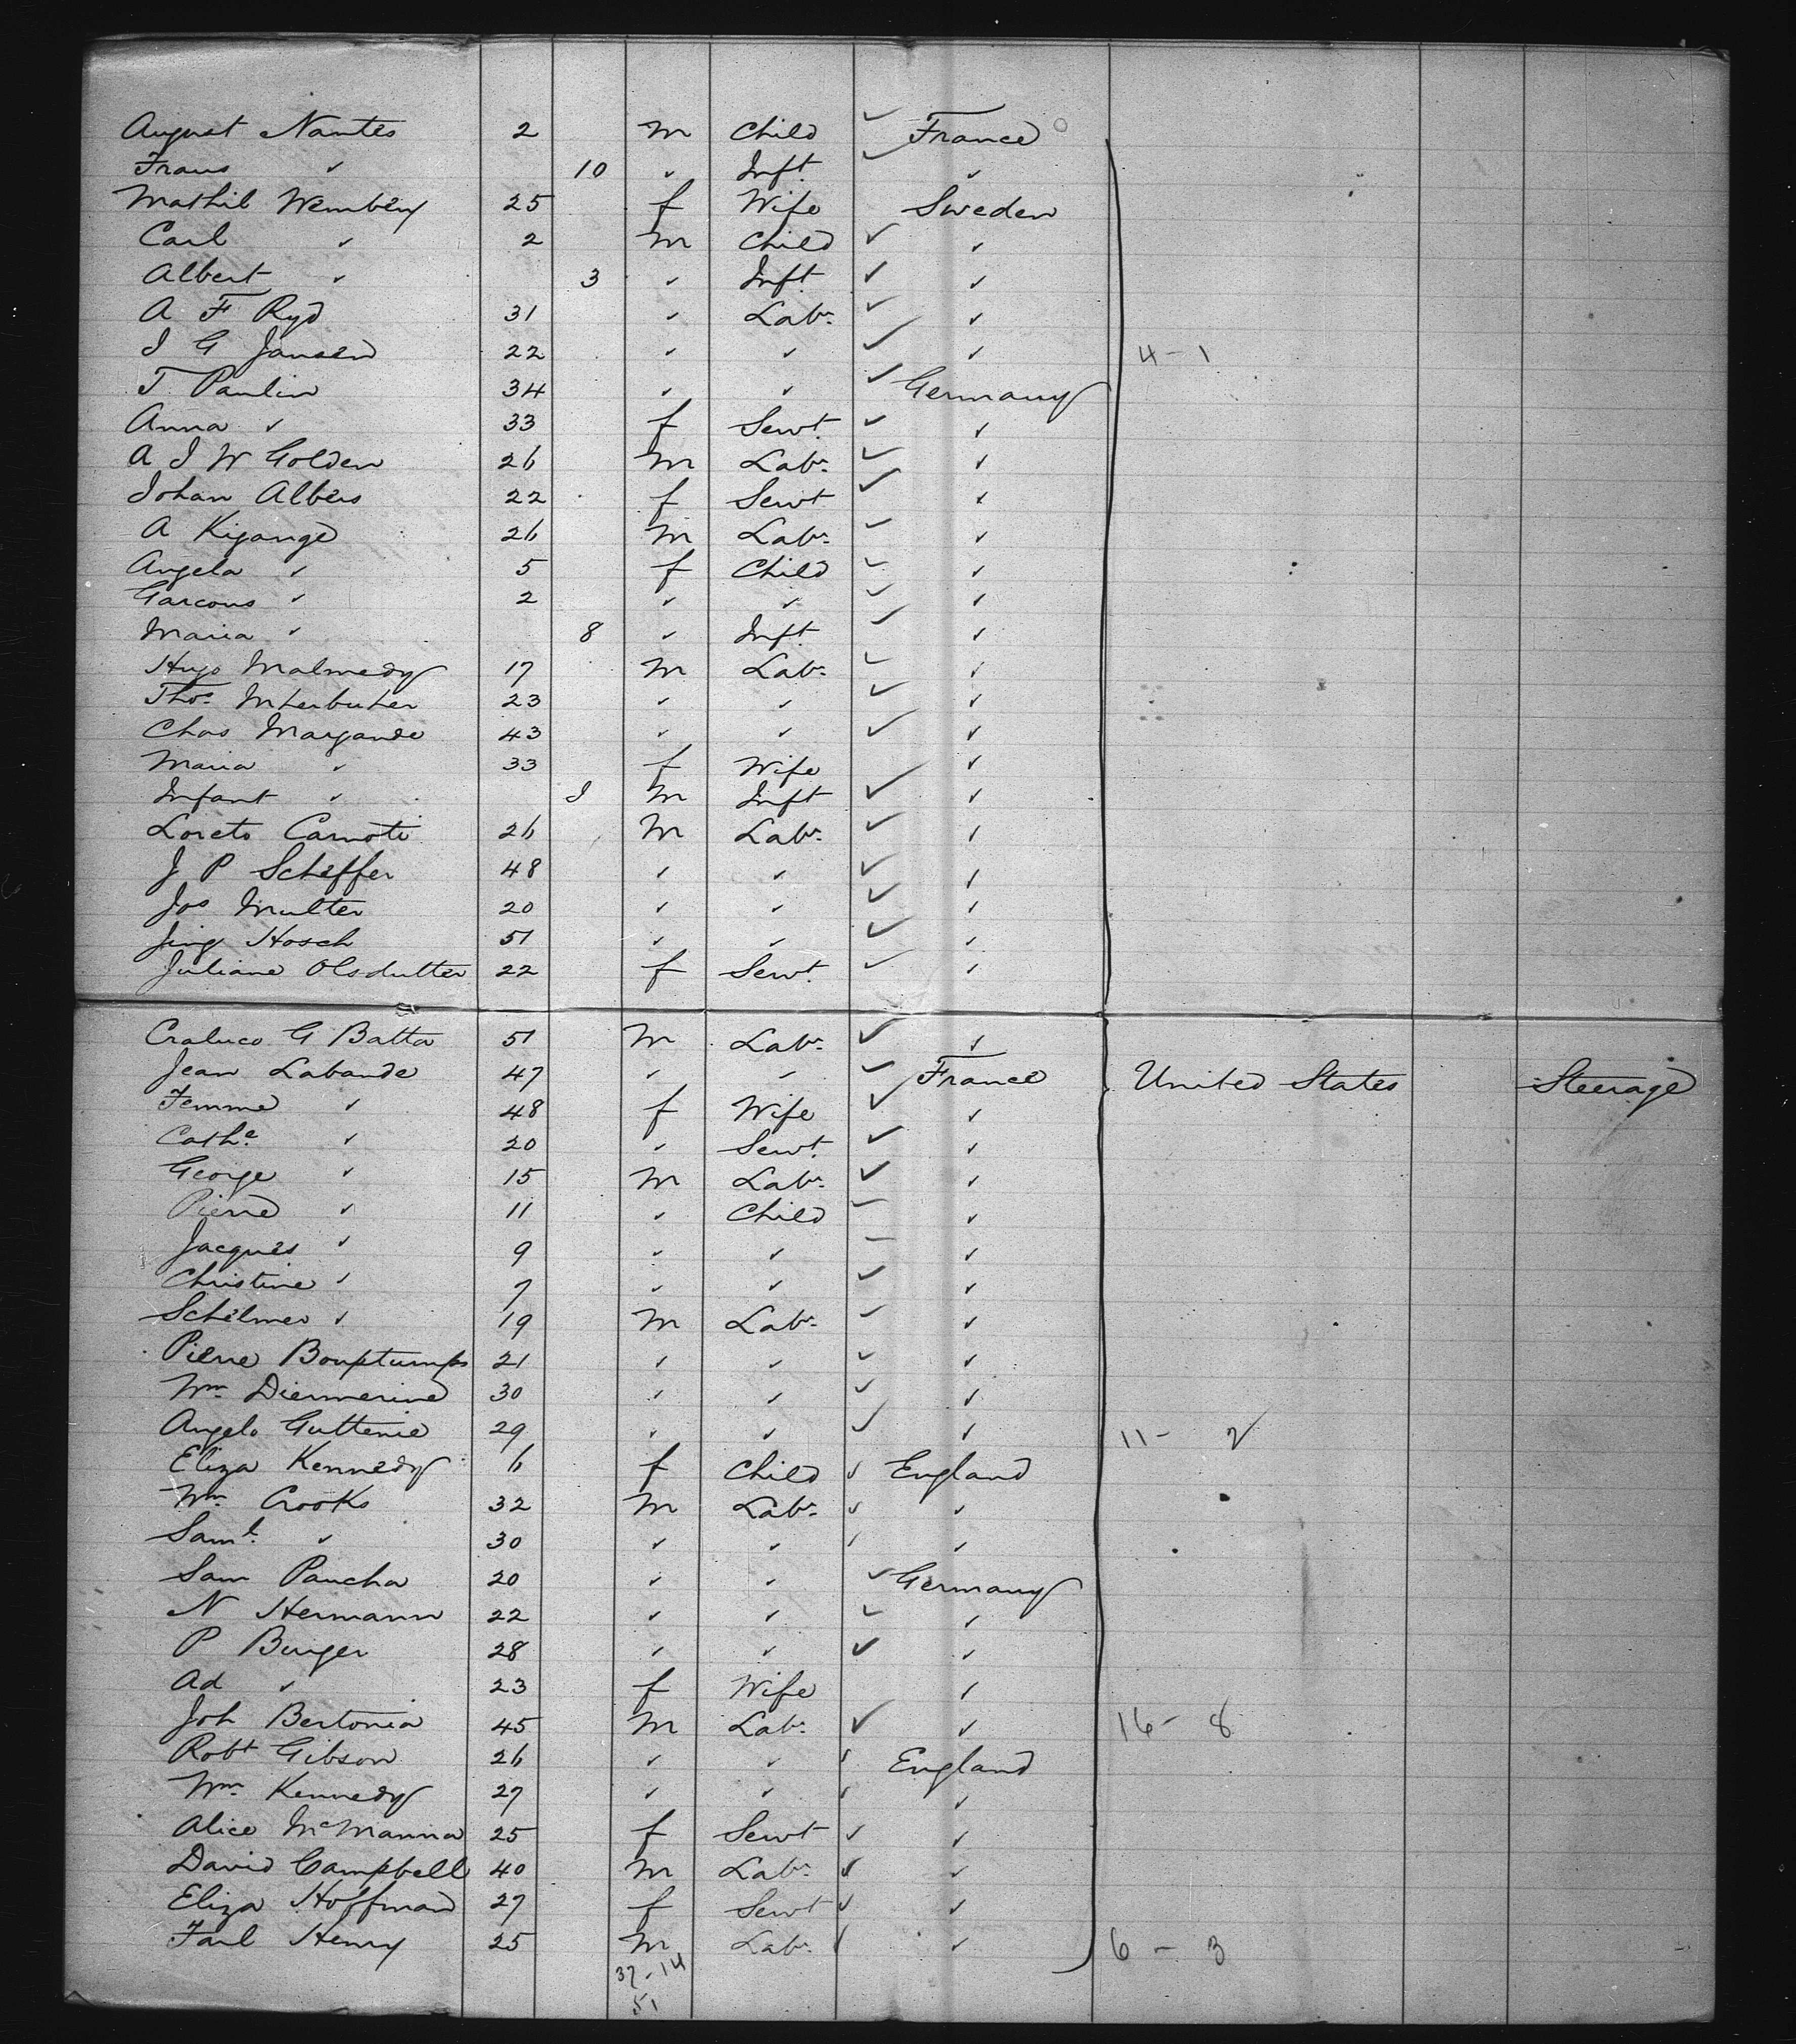 August Nantes 2 m Child ✓ France
Frans ✓ 10 ✓ Inft. ✓ ✓
Mathil Wembery 25 f Wife Sweden
Carl ✓ 2 m Child ✓ ✓
Albert ✓ 3 ✓ Inft. ✓ ✓
A F Ryd 31 ✓ Labr. ✓ ✓
J G Jansen 22 ✓ ✓ ✓ ✓ 4 - 1
T Paulin 34 ✓ ✓ ✓ Germany
Anna ✓ 33 f Servt. ✓ ✓
A J W Golden 26 m Labr. ✓ ✓
Johan Albers 22 f Servt ✓ ✓
A Kigange 26 m Labr. ✓ ✓
Angela ✓ 5 f Child ✓ ✓
Garcons ✓ 2 ✓ ✓ ✓ ✓
Maria ✓ 8 ✓ Inft. ✓ ✓
Hugo Malmedy 17 m Labr. ✓ ✓
Thos. 23 ✓ ✓ ✓ ✓
Chas Margande 43 ✓ ✓ ✓ ✓
Maria ✓ 33 f Wife ✓
Infant ✓ m Inft ✓ ✓
Loreto Carnoti 26 m Labr. ✓ ✓
J P Scheffer 48 ✓ ✓ ✓ ✓
Jos Multer 20 ✓ ✓ ✓ ✓
Jing Hosch 51 ✓ ✓ ✓ ✓
Juliane Olsdutter 22 f Servt. ✓ ✓
Craluco G Batta 51 m Labr. ✓ ✓
Jean Labande 47 ✓ ✓ ✓ France United States Steerage
Femme ✓ 48 f Wife ✓ ✓
Cathe. ✓ 20 ✓ Servt. ✓ ✓
George ✓ 15 m Labr. ✓ ✓
Pierre ✓ 11 ✓ Child ✓ ✓
Jacques ✓ 9 ✓ ✓ ✓ ✓
Christine ✓ 7 ✓ ✓ ✓ ✓
Schelmer ✓ 19 m Labr. ✓ ✓
Pierre Bouptumps 21 ✓ ✓ ✓ ✓
Wm. Diermerine 30 ✓ ✓ ✓ ✓
Angelo Guttenie 29 ✓ ✓ ✓ ✓ 11 - 2
Eliza Kennedy 6 f Child ✓ England
Wm. Crooks 32 m Labr. ✓ ✓
Saml. ✓ 30 ✓ ✓ ✓ ✓
Sam Paucha 20 ✓ ✓ ✓ Germany
N Hermann 22 ✓ ✓ ✓ ✓
P Burger 28 ✓ ✓ ✓ ✓
Ad ✓ 23 f Wife ✓
Joh Bertonia 45 m Labr. ✓ ✓ 16 - 8
Robt Gibson 26 ✓ ✓ ✓ England
Wm. Kennedy 27 ✓ ✓ ✓ ✓
Alice McManna 25 f Servt ✓ ✓
David Campbell 40 m Labr. ✓ ✓
Eliza Hoffman 27 f Servt ✓ ✓
Farl Henry 25 m Labr. ✓ ✓ 6 - 3
37 - 14
51